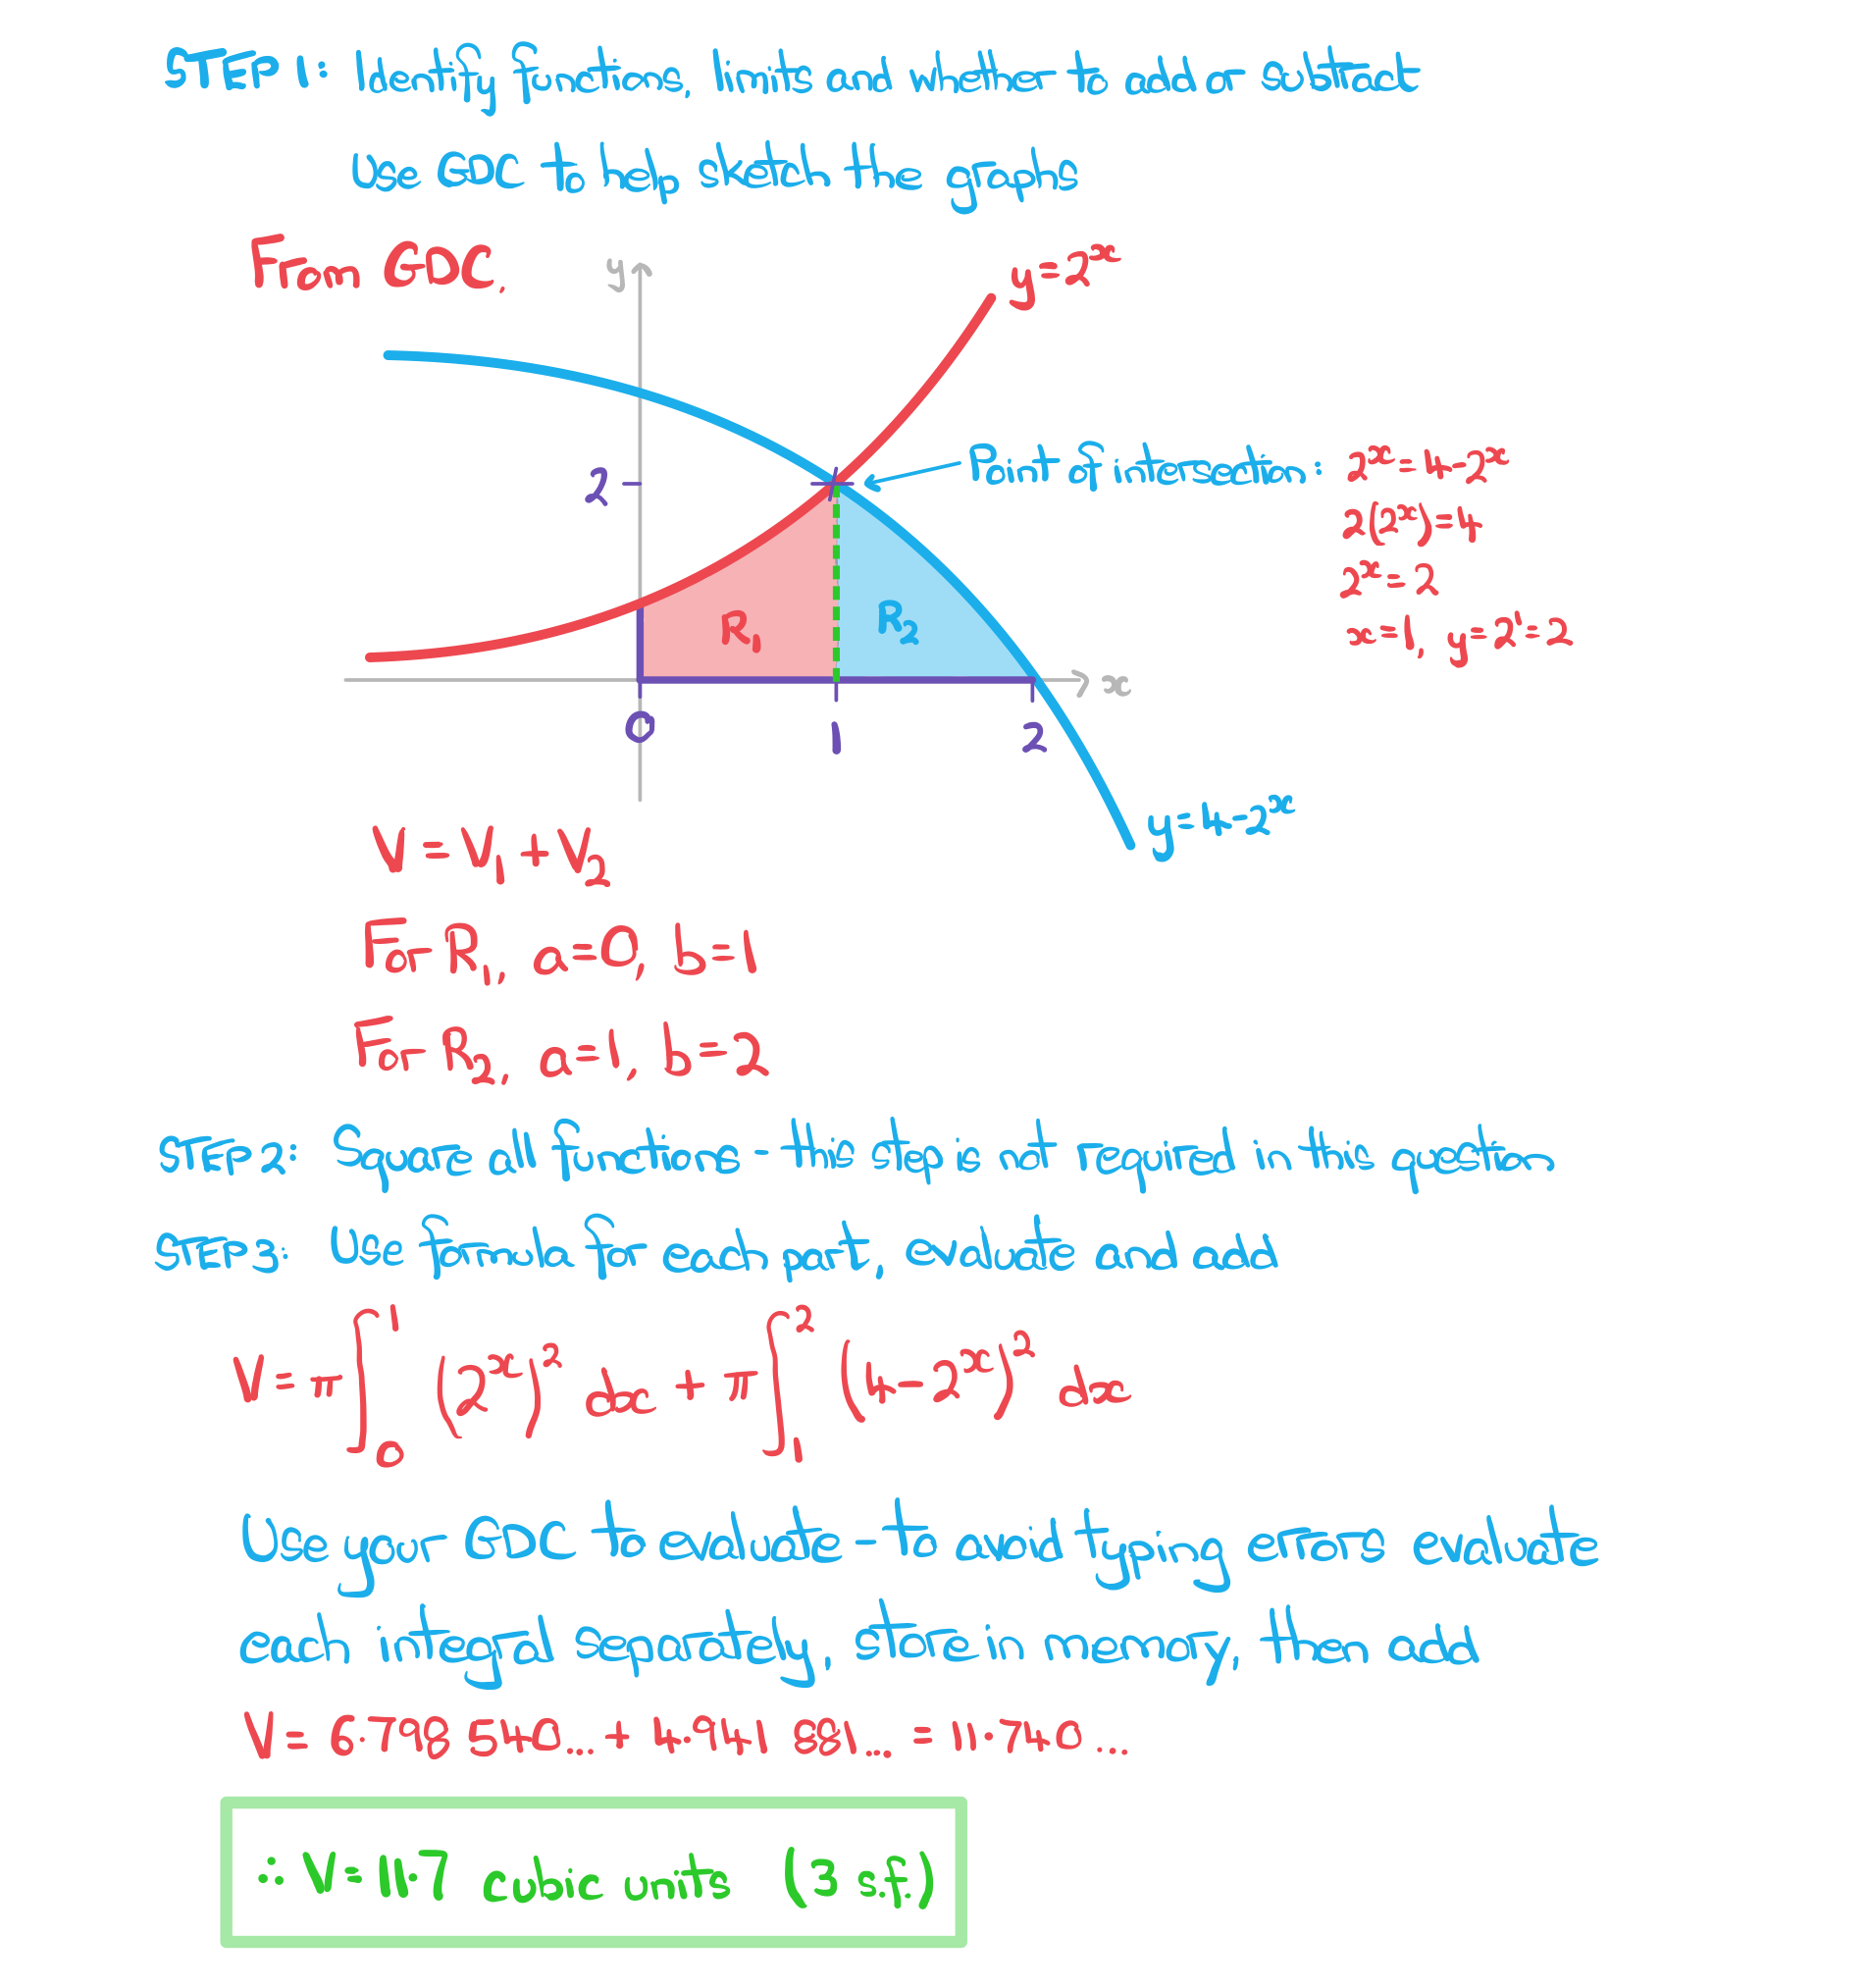 STEP 1: Identify functions, limits and whether to add or subtract
Use GDC to help sketch the graphs
From GDC,
y
y=2ˣ
2
Point of intersection: 2ˣ=4-2ˣ
2(2ˣ)=4
2ˣ=2
x=1, y=2¹=2
R₁
R₂
x
0
1
2
y=4-2ˣ
V=V₁+V₂
For R₁, a=0, b=1
For R₂, a=1, b=2
STEP 2: Square all functions - this step is not required in this question
STEP 3: Use formula for each part, evaluate and add
V=π∫₀¹ (2ˣ)² dx + π∫₁² (4-2ˣ)² dx
Use your GDC to evaluate - to avoid typing errors evaluate
each integral separately, store in memory, then add
V= 6·798 540... + 4·941 881... = 11·740...
∴ V=11·7 cubic units (3 s.f.)